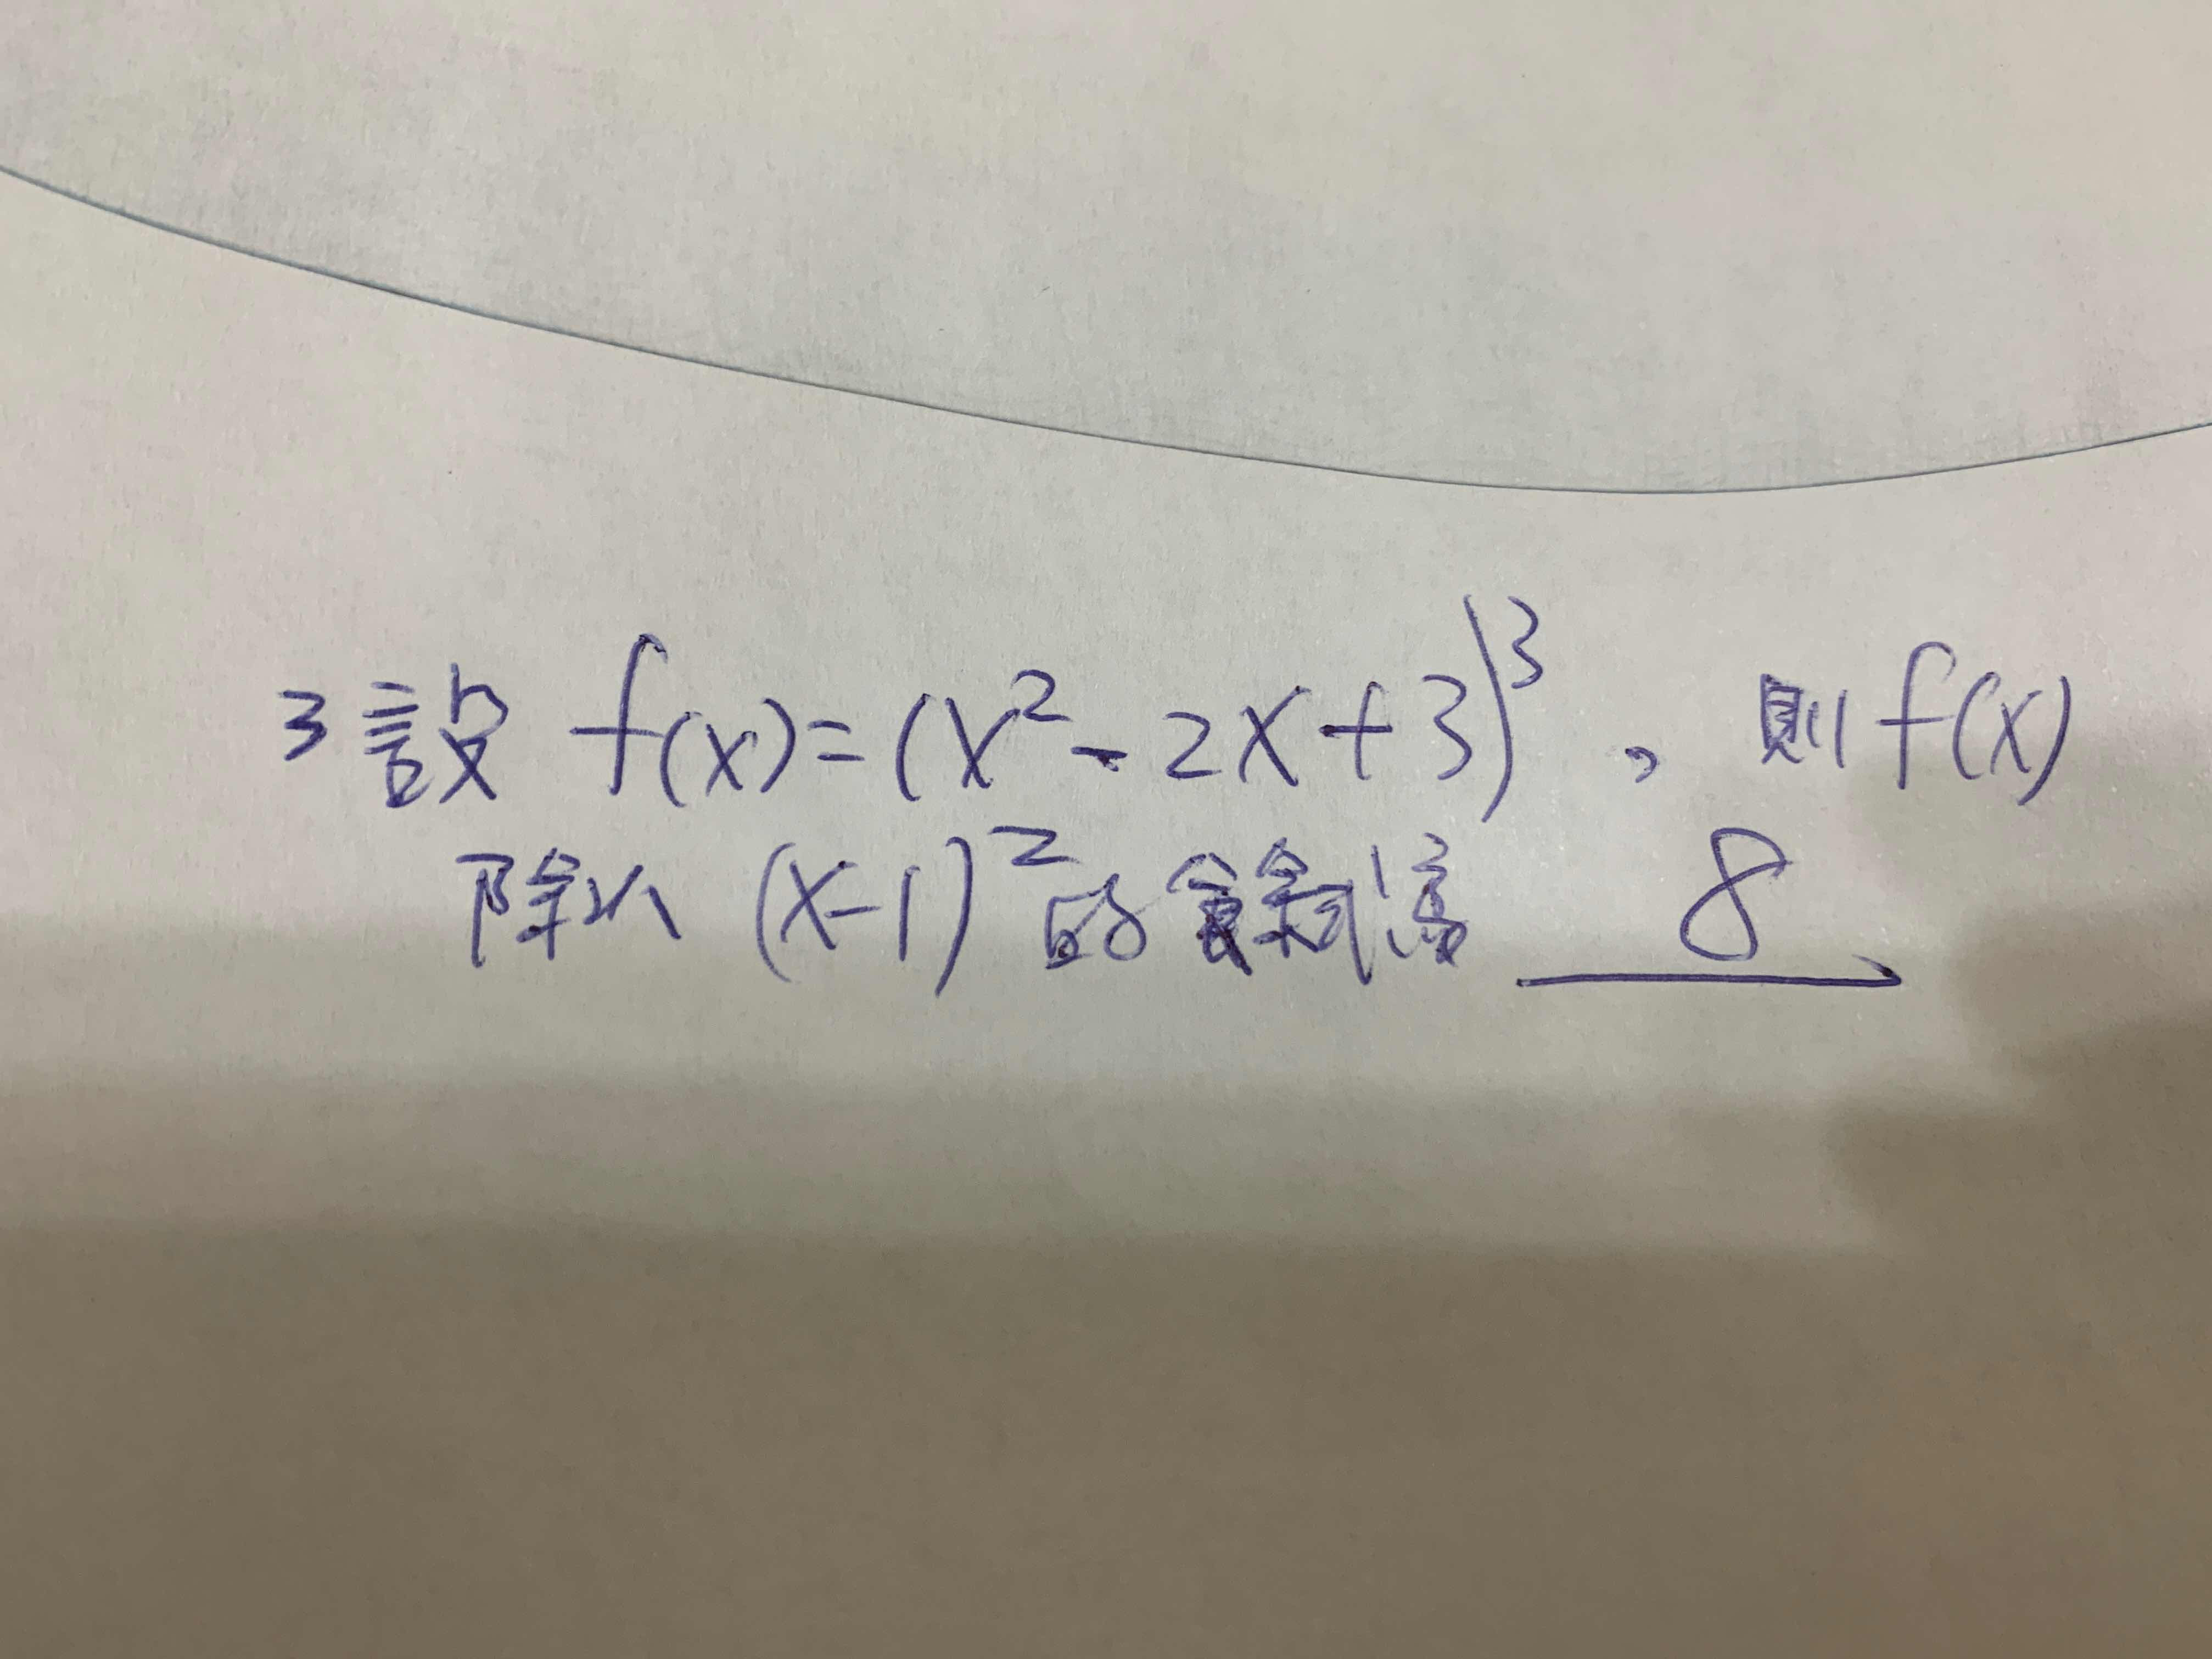 3 設 f(x)=(x²-2x+3)³, 則f(x)
除以 (x-1)²的餘式為 8